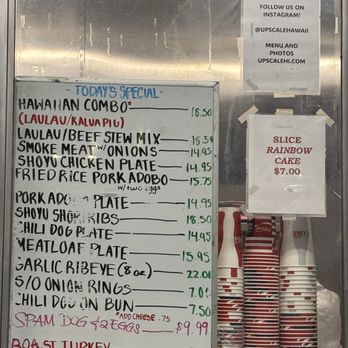 FOLLOW US ON
INSTAGRAM!
@UPSCALEHAWAII
MENU AND
PHOTOS
UPSCALEHI.COM
TODAY'S SPECIAL
HAWAIIAN COMBO* 18.50
(LAULAU/KALUA PIG)
LAULAU/BEEF STEW MIX 15.50
SMOKE MEAT W/ ONIONS 14.95
SHOYU CHICKEN PLATE 14.95
FRIED RICE PORK ADOBO 15.75
W/TWO EGGS
PORK ADOBO PLATE 14.95
SHOYU SHORT RIBS 18.50
CHILI DOG PLATE 14.45
MEATLOAF PLATE 15.95
GARLIC RIBEYE (8 oz) 22.00
S/O ONION RINGS 7.0
CHILI DOG ON BUN 7.50
*ADD CHEESE .75
SPAM DOG & 2 EGGS $9.99
ROAST TURKEY
SLICE
RAINBOW
CAKE
$7.00